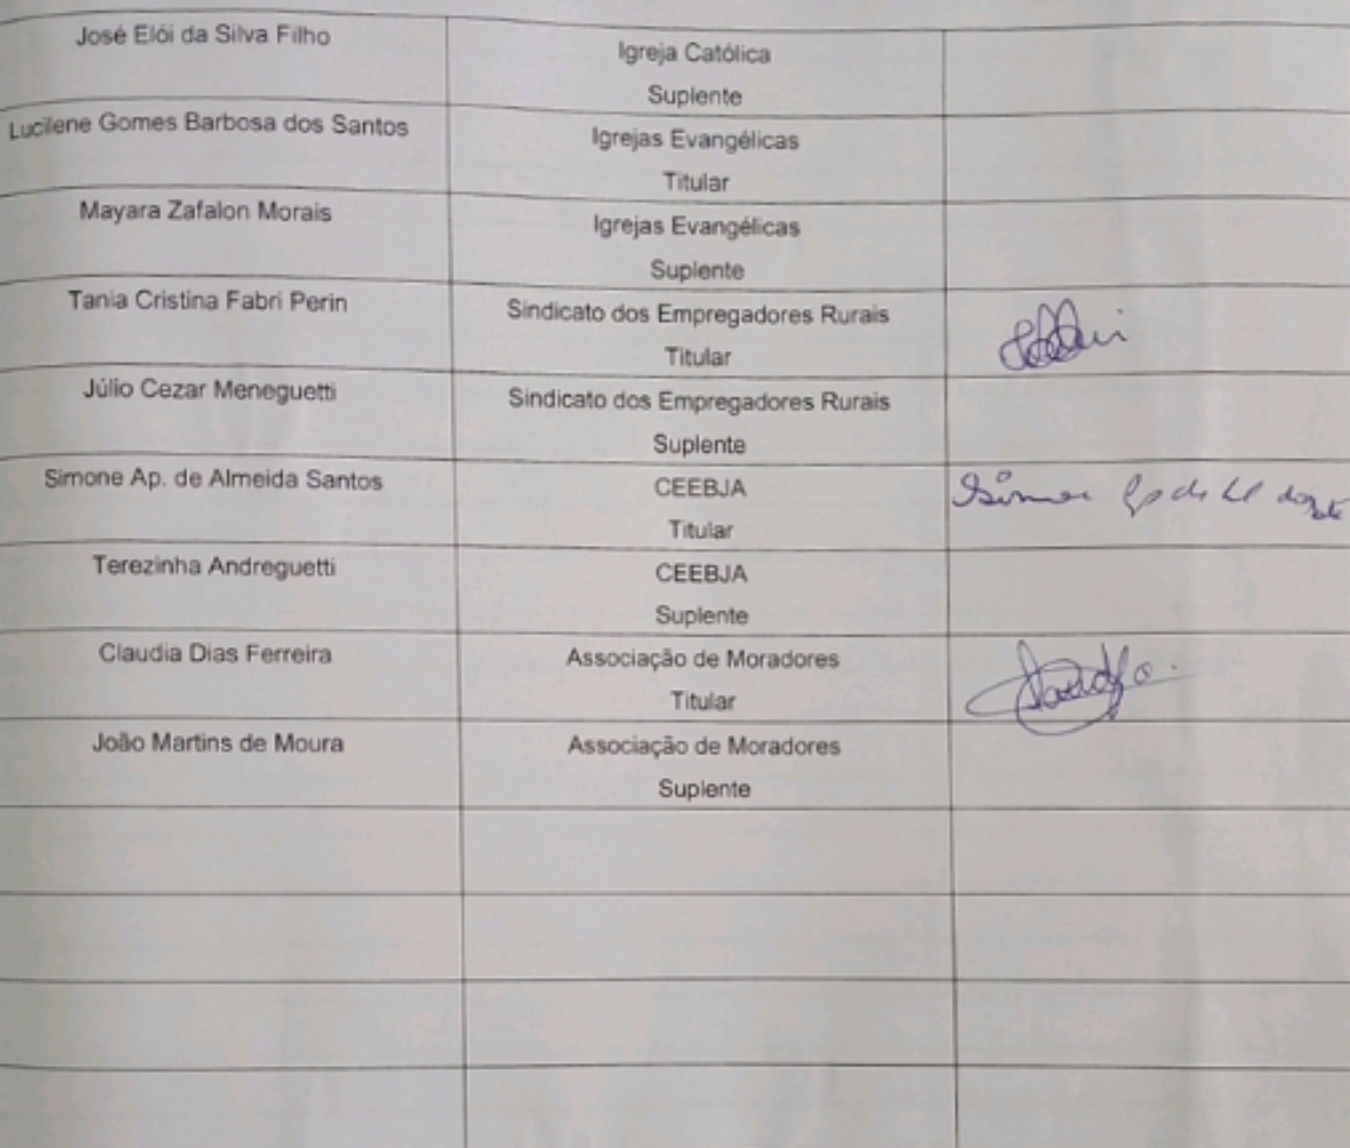 José Elói da Silva Filho
Igreja Católica
Suplente
Lucilene Gomes Barbosa dos Santos
Igrejas Evangélicas
Titular
Mayara Zafalon Morais
Igrejas Evangélicas
Suplente
Tania Cristina Fabri Perin
Sindicato dos Empregadores Rurais
Titular
Júlio Cezar Meneguetti
Sindicato dos Empregadores Rurais
Suplente
Simone Ap. de Almeida Santos
CEEBJA
Titular
Terezinha Andreguetti
CEEBJA
Suplente
Claudia Dias Ferreira
Associação de Moradores
Titular
João Martins de Moura
Associação de Moradores
Suplente